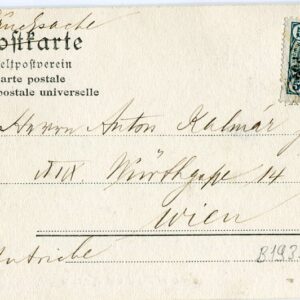 Drucksache
Postkarte
Weltpostverein
Carte postale
postale universelle
Herrn Anton Kalmár
XIX. Würthgasse 14
Wien
B193